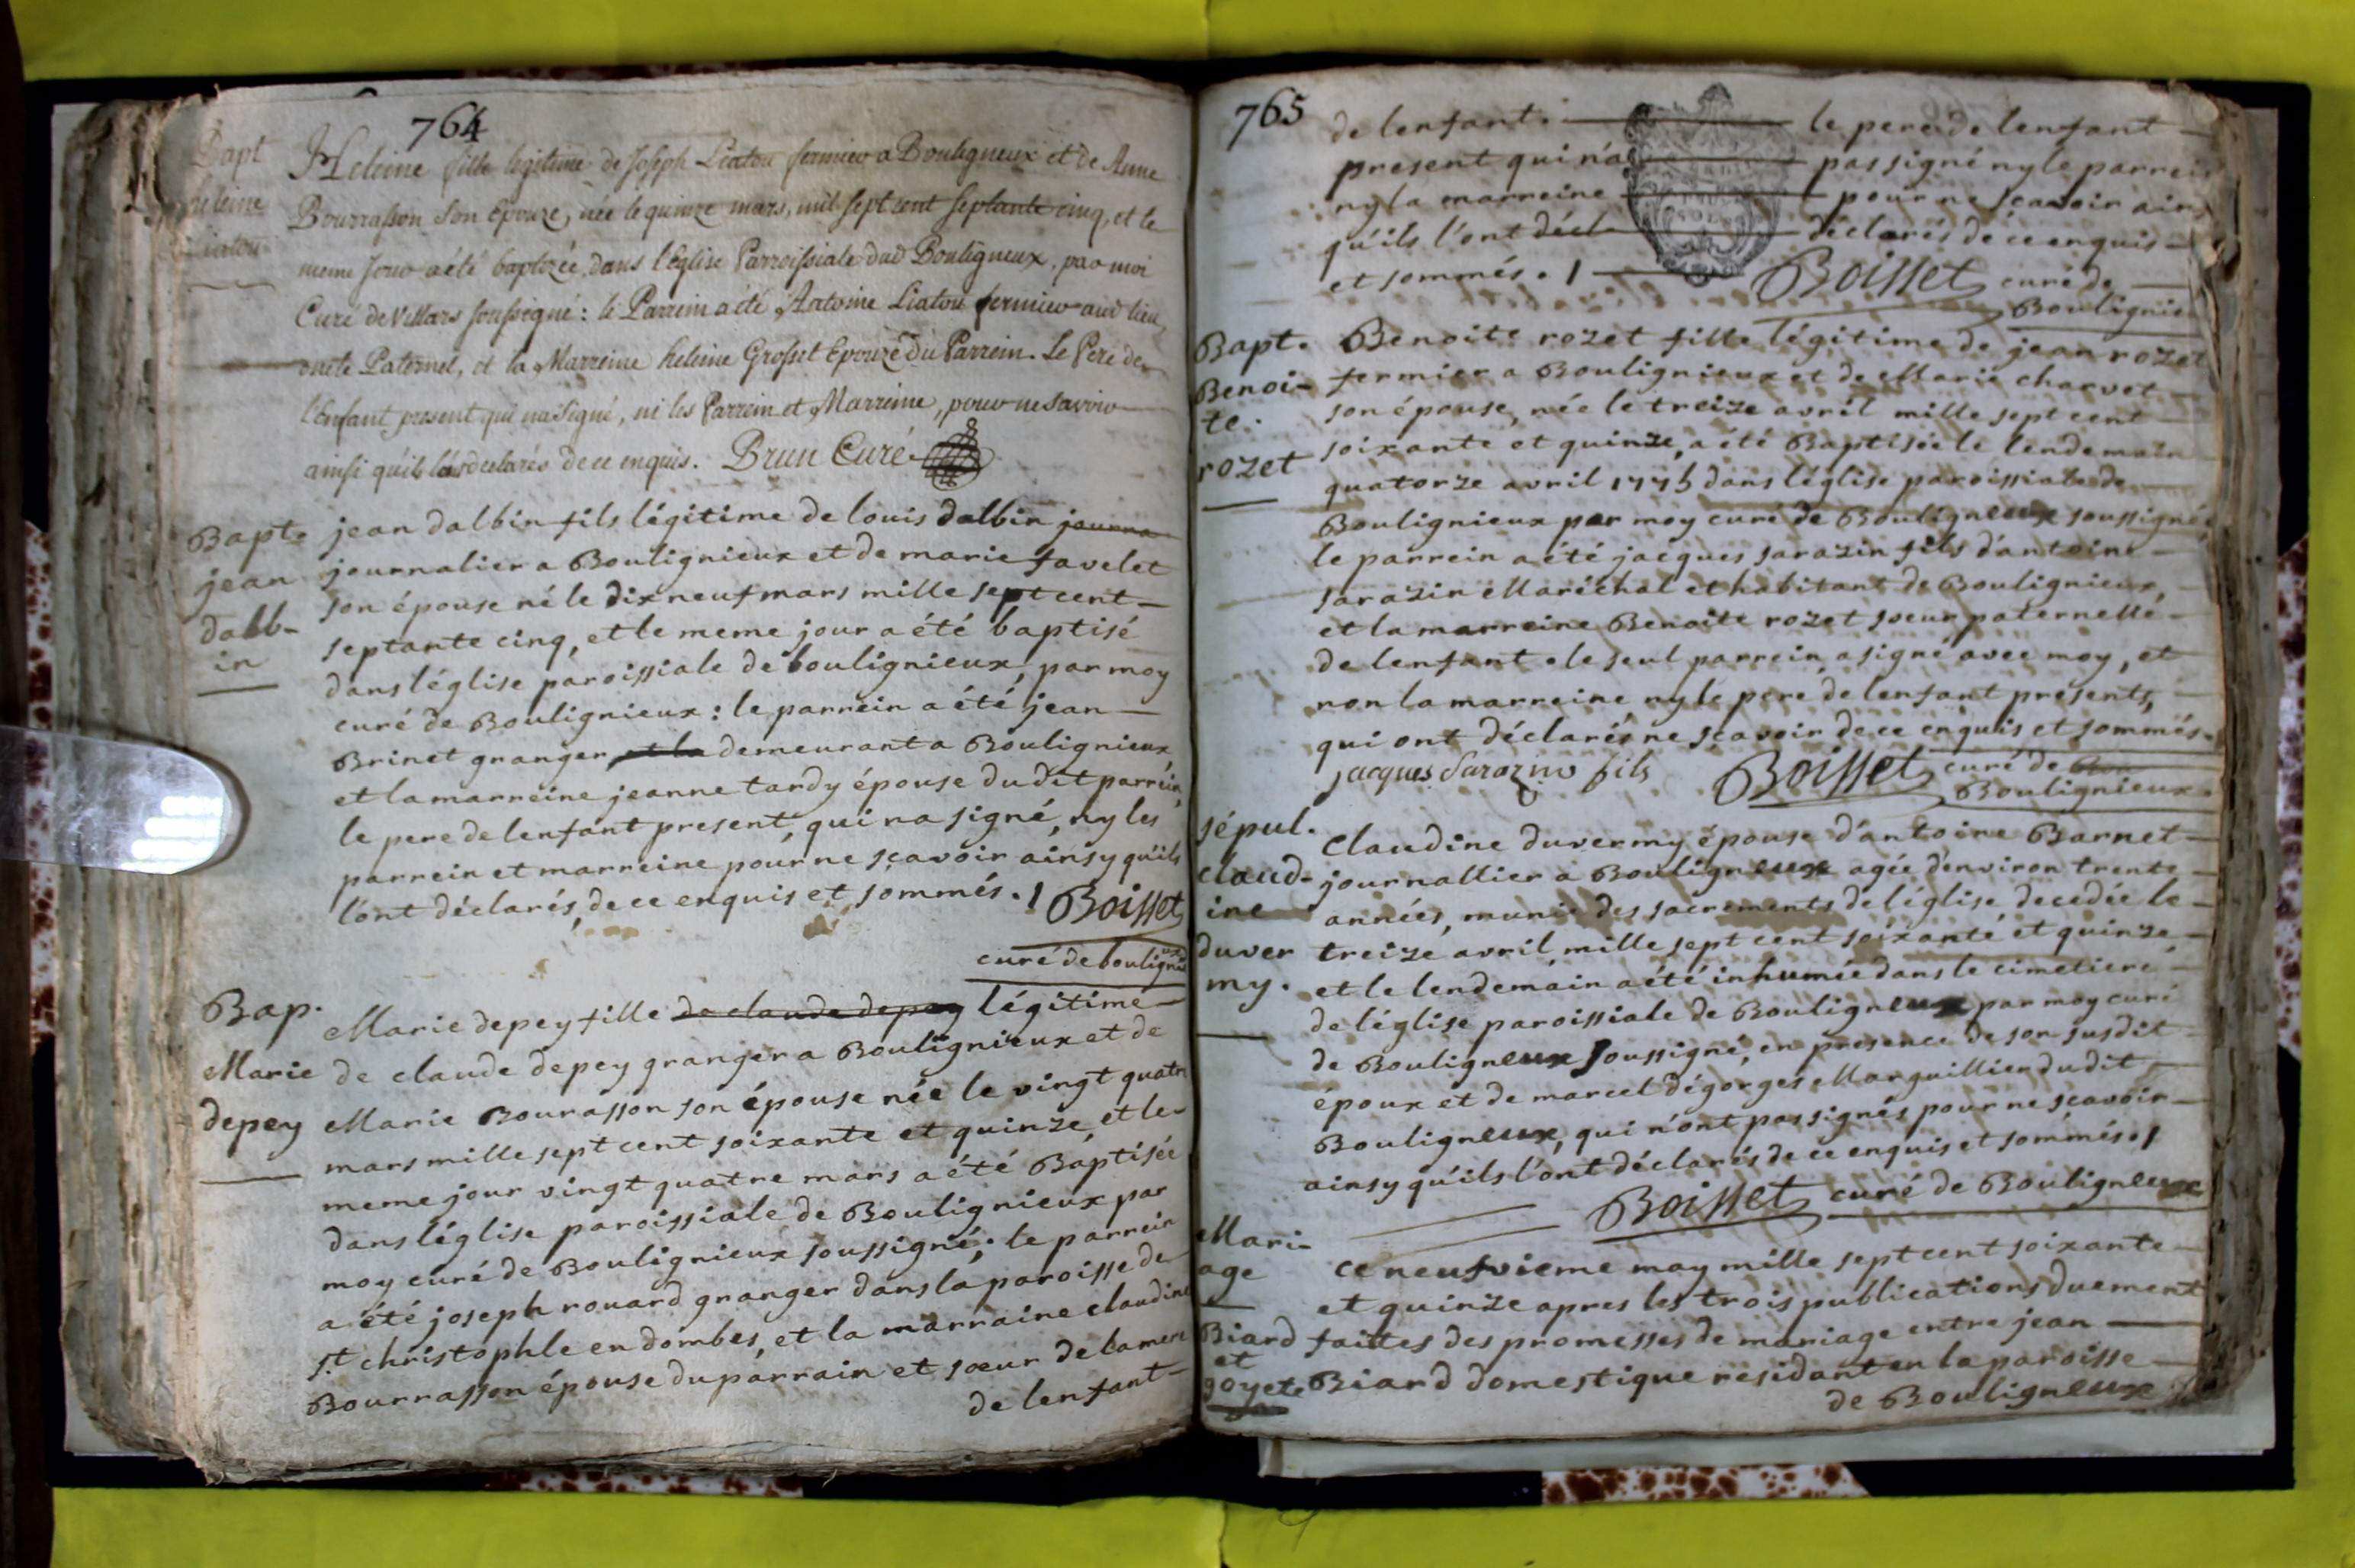 764
Bapt
heleine
Liatou
Heleine fille legitime de Joseph Liatou fermier a Bouligneux et de Anne
Bourrasson son Epouze, née le quinze mars, mil sept cent septante cinq, et le
meme jour a été baptizée dans l'église Parroissiale dud Bouligneux, par moi
Curé de Villars soussigné : le Parrein a été Antoine Liatou fermier aud lieu
oncle Paternel, et la Marreine heleine Grosset Epouze du Parrein. Le Pere de
l'Enfant present qui na signé, ni les Parrein et Marreine, pour ne savoir
ainsi qu'ils declarés de ce enquis. Brun Curé
Bapt.
jean
dalb-
in
jean dalbin fils légitime de louis dalbin journa
journalier a Boulignieux et de marie favelet
son épouse né le dix neuf mars mille sept cent
septante cinq, et le meme jour a été baptisé
dans l'église paroissiale de boulignieux, par moy
curé de Boulignieux : le parrein a été jean
Brinet granger et la demeurant a Boulignieux
et la marreine jeanne tardy épouse du dit parrein,
le pere de lenfant present, qui na signé, ny les
parrein et marreine pour ne sçavoir ainsy qu'ils
l'ont déclarés, de ce enquis et sommés. / Boisset
curé de boulignieux
Bap.
Marie
depey
Marie depey fille de claude depey légitime
de claude depey granger a Boulignieux et de
Marie Bourasson son épouse née le vingt quatre
mars mille sept cent soixante et quinze, et le
meme jour vingt quatre mars a été Baptisée
dans l'église paroissiale de Boulignieux par
moy curé de Boulignieux soussigné ; le parrein
a été joseph rouard granger dans la paroisse de
st. christophle en dombes, et la marraine claudine
Bourrasson épouse du parrain et sœur de la mere
de lenfant
765
de lenfant. le pere de lenfant
present qui n'a pas signé ny le parrein
ny la marreine pour ne sçavoir
qu'ils l'ont décl déclarés de ce enquis
et sommés. / Boisset curé de
Boulignieux
Bapt.
Benoi-
te.
rozet
Benoite rozet fille légitime de jean rozet
fermier a Boulignieux et de Marie charvet
son épouse, née le treize avril mille sept cent
soixante et quinze, a été Baptisée le lendemain
quatorze avril 1775 dans l'église paroissiale de
Boulignieux par moy curé de Bouligneux soussigné,
le parrein a été jacques sarazin fils d'antoine
sarazin Maréchal et habitant de Boulignieux,
et la marreine Benoite rozet sœur paternelle
de lenfant. le seul parrein a signé avec moy, et
non la marreine ny le pere de lenfant presents,
qui ont déclarés ne sçavoir de ce enquis et sommés.
jacques Sarazin fils Boisset curé de
Boulignieux.
sépul.
claud-
ine
duver
my.
Claudine duvermy épouse d'antoine Barnet
journallier a Bouligneux agée d'environ trente
années, munie des sacrements de l'église decedée le
treize avril mille sept cent soixante et quinze,
et le lendemain a été inhumée dans le cimetiere
de l'église paroissiale de Bouligneux par moy curé
de Bouligneux soussigné, en presence de son susdit
époux et de marcel dégorges Marguillier du dit
Bouligneux, qui n'ont pas signés pour ne sçavoir
ainsy qu'ils l'ont déclarés de ce enquis et sommés. /
Boisset curé de Bouligneux
Mari-
age
Biard
et
goyet
ce neufvieme may mille sept cent soixante
et quinze apres les trois publications duement
faittes des promesses de mariage entre jean
Biard domestique residant en la paroisse
de Bouligneux